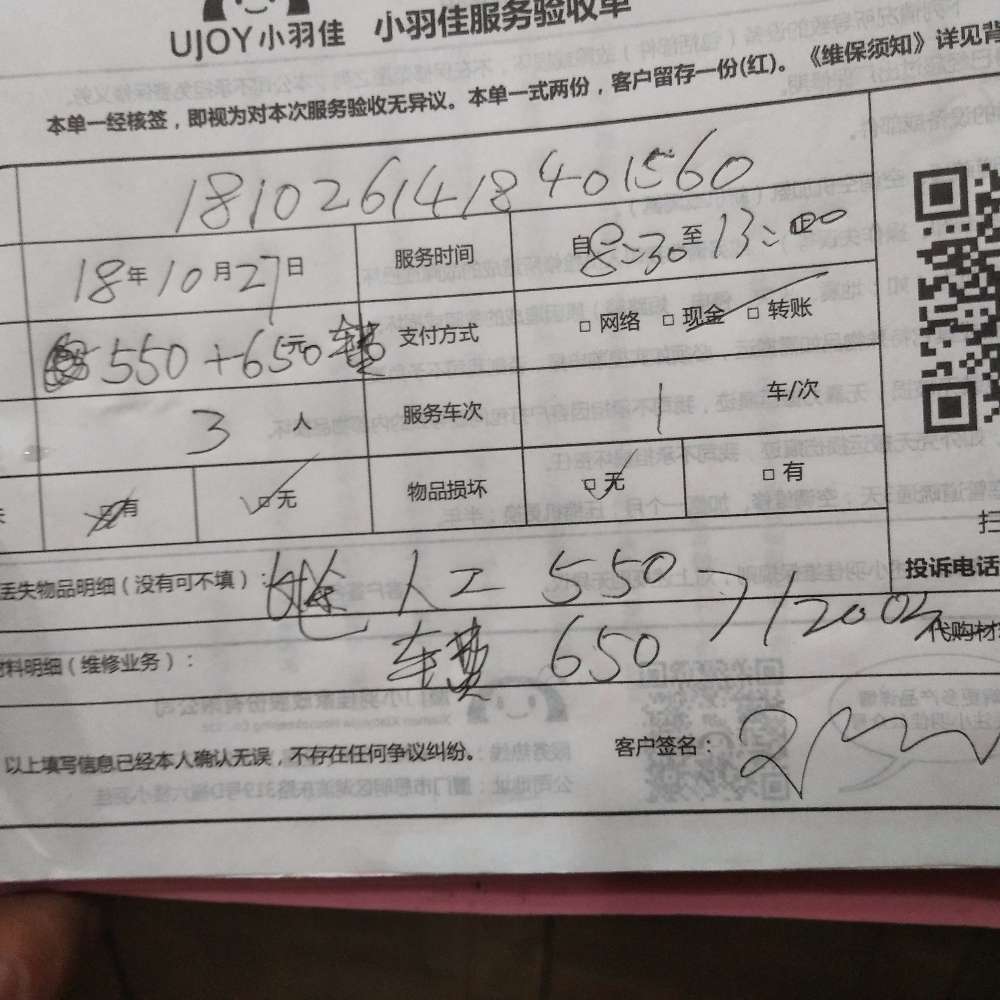 UJOY小羽佳 小羽佳服务验收单
本单一经核签，即视为对本次服务验收无异议。本单一式两份，客户留存一份(红)。《维保须知》详见背
1810261418401560
18年10月27日 服务时间 自8:30至13:00
550+650元车费 支付方式 □网络 □现金 □转账
3人 服务车次 1 车/次
□有 □无 物品损坏 □无 □有
扫
丢失物品明细（没有可不填）： 人工 550
投诉电话
料明细（维修业务）： 车费 650 1200元
代购材
以上填写信息已经本人确认无误，不存在任何争议纠纷。 客户签名：